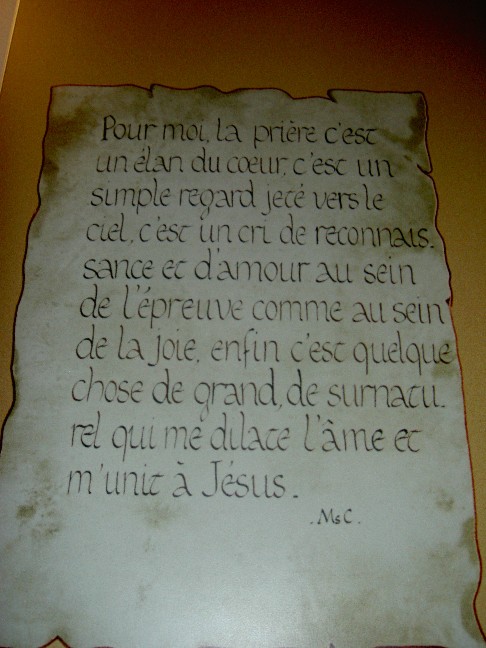 Pour moi, la prière c'est
un élan du cœur, c'est un
simple regard jeté vers le
ciel, c'est un cri de reconnais.
sance et d'amour au sein
de l'épreuve comme au sein
de la joie, enfin c'est quelque
chose de grand, de surnatu.
rel qui me dilate l'âme et
m'unit à Jésus.
. Ms C.